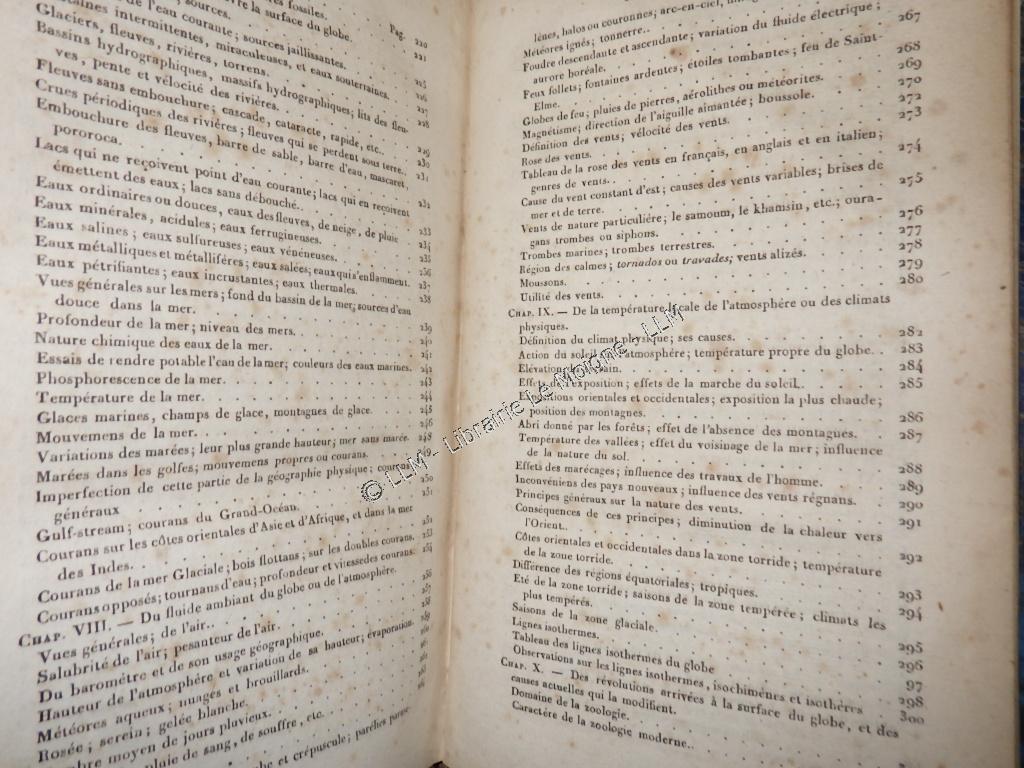 fossiles.
la surface du globe.
Pag. 220
de l'eau courante; sources jaillissantes. 221
intermittentes, miraculeuses, et eaux souterraines.
Glaciers, fleuves, rivières, torrens. 225
Bassins hydrographiques, massifs hydrographiques; lits des fleu- 226
ves, pente et vélocité des rivières. 227
Fleuves sans embouchure; cascade, cataracte, rapide, etc.. 228
Crues périodiques des rivières; fleuves qui se perdent sous terre.. 229
Embouchure des fleuves, barre de sable, barre d'eau, mascaret, 230
pororoca. 231
Lacs qui ne reçoivent point d'eau courante; lacs qui en reçoivent
émettent des eaux; lacs sans débouché. 232
Eaux ordinaires ou douces, eaux des fleuves, de neige, de pluie 233
Eaux minérales, acidules; eaux ferrugineuses. 234
Eaux salines; eaux sulfureuses; eaux vénéneuses. 235
Eaux métalliques et métallifères; eaux salées; eaux qui s'enflamment. 236
Eaux pétrifiantes; eaux incrustantes; eaux thermales. 237
Vues générales sur les mers; fond du bassin de la mer; sources d'eau 238
douce dans la mer.
Profondeur de la mer; niveau des mers. 239
Nature chimique des eaux de la mer. 240
Essais de rendre potable l'eau de la mer; couleurs des eaux marines. 241
Phosphorescence de la mer. 242
Température de la mer. 243
Glaces marines, champs de glace, montagnes de glace. 244
Mouvemens de la mer. 245
Variations des marées; leur plus grande hauteur; mer sans marée. 246
Marées dans les golfes; mouvemens propres ou courans. 248
Imperfection de cette partie de la géographie physique; courans 249
généraux 250
Gulf-stream; courans du Grand-Océan. 251
Courans sur les côtes orientales d'Asie et d'Afrique, et dans la mer
des Indes.
Courans de la mer Glaciale; bois flottans; sur les doubles courans.
Courans opposés; tournans d'eau; profondeur et vitesse des courans.
CHAP. VIII. — Du fluide ambiant du globe ou de l'atmosphère.
Vues générales; de l'air..
Salubrité de l'air; pesanteur de l'air.
Du baromètre et de son usage géographique.
Hauteur de l'atmosphère et variation de sa hauteur; évaporation.
Météores aqueux; nuages et brouillards.
Rosée; serein; gelée blanche.
moyen de jours pluvieux.
pluie de sang, de souffre, etc.
et crépuscule; parélies
lènes, halos ou couronnes; arc-en-ciel,
Météores ignés; tonnerre.. 267
Foudre descendante et ascendante; variation du fluide électrique;
aurore boréale.
Feux follets; fontaines ardentes; étoiles tombantes; feu de Saint- 268
Elme. 269
Globes de feu; pluies de pierres, aérolithes ou météorites. 270
Magnétisme; direction de l'aiguille aimantée; boussole. 272
Définition des vents; vélocité des vents. 273
Rose des vents.
Tableau de la rose des vents en français, en anglais et en italien;
genres de vents. 274
Cause du vent constant d'est; causes des vents variables; brises de
mer et de terre. 275
Vents de nature particulière; le samoum, le khamsin, etc.; oura-
gans trombes ou siphons. 276
Trombes marines; trombes terrestres. 277
Région des calmes; tornados ou travades; vents alizés. 278
Moussons. 279
Utilité des vents. 280
CHAP. IX. — De la température locale de l'atmosphère ou des climats
physiques.
Définition du climat physique; ses causes. 282
Action du soleil l'atmosphère; température propre du globe. 283
Elévation du terrain. 284
Effets de l'exposition; effets de la marche du soleil. 285
Expositions orientales et occidentales; exposition la plus chaude;
position des montagnes. 286
Abri donné par les forêts; effet de l'absence des montagues. 287
Température des vallées; effet du voisinage de la mer; influence
de la nature du sol. 288
Effets des marécages; influence des travaux de l'homme. 289
Inconvéniens des pays nouveaux; influence des vents régnans. 290
Principes généraux sur la nature des vents. 291
Conséquences de ces principes; diminution de la chaleur vers
l'Orient.. 292
Côtes orientales et occidentales dans la zone torride; température
de la zone torride. 293
Différence des régions équatoriales; tropiques. 294
Eté de la zone torride; saisons de la zone tempérée; climats les
plus tempérés. 295
Saisons de la zone glaciale. 296
Lignes isothermes. 97
Tableau des lignes isothermes du globe 298
Observations sur les lignes isothermes, isochimènes et isothères 300
CHAP. X. — Des révolutions arrivées à la surface du globe, et des
causes actuelles qui la modifient.
Domaine de la zoologie.
Caractère de la zoologie moderne..
© LLM - Librairie Le Moigne - LLM